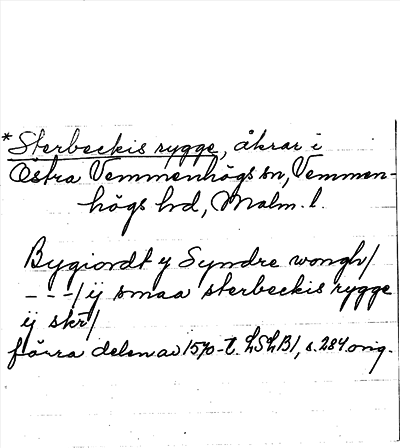 *Sterbeckis rygge, åkrar i
Östra Vemmenhögs sn, Vemmen-
högs hd, Malm. l.
Bygiordt y Syndre wongh/
---/ ij smaa sterbeckis rygge
ij skr/
förra delen av 1570-t. LSLB1, s. 284 orig.